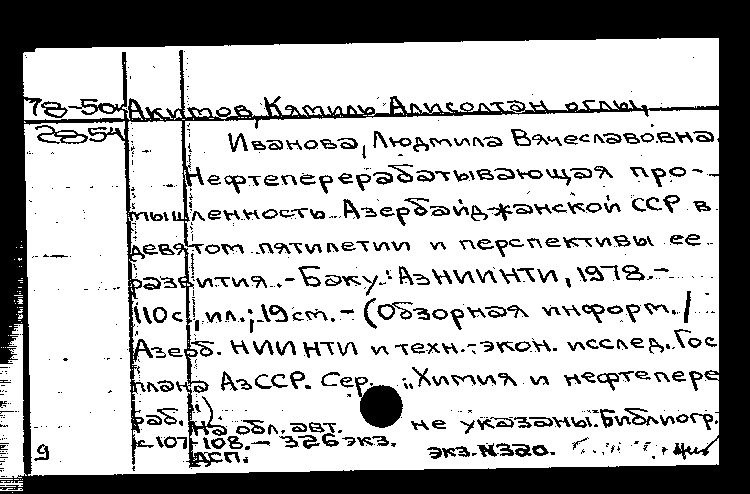 78-50к Акимов, Кямиль Алисолтан оглы,
2854 Иванова, Людмила Вячеславовна.
Нефтеперерабатывающая про-
мышленность Азербайджанской ССР в
девятом пятилетии и перспективы ее
развития. - Баку: АзНИИНТИ, 1978. -
110 с., ил.; 19 см. - (Обзорная информ. /
Азерб. НИИ НТИ и техн.-экон. исслед. Гос
плана АзССР. Сер.: "Химия и нефтепере
раб.")
На обл. авт. не указаны. Библиогр.
с. 107-108. - 326 экз.
9 ДСП. экз. N320.